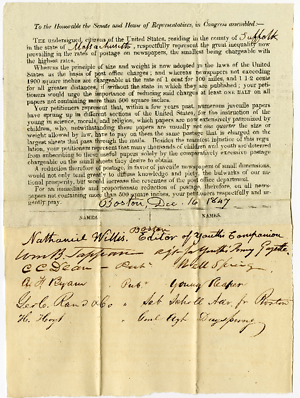 To the Honorable the Senate and House of Representatives, in Congress assembled:—
The undersigned citizens of the United States, residing in the county of Suffolk
in the state of Massachusetts, respectfully represent the great inequality now
prevailing in the rates of postage on newspapers, the smallest being chargeable with
the highest rates.
Whereas the principle of size and weight is now adopted in the laws of the United
States as the basis of post office charges; and whereas newspapers not exceeding
1900 square inches are chargeable at the rate of 1 cent for 100 miles, and 1 1-2 cents
for all greater distances, if without the state in which they are published; your pe-
titioners would urge the importance of reducing said charges at least one half on all
papers not containing more than 500 square inches.
Your petitioners represent that, within a few years past, numerous juvenile papers
have sprung up in different sections of the United States, for the instruction of the
young in science, morals, and religion, which papers are most extensively patronized by
children, who, notwithstanding those papers are usually not one quarter the size or
weight allowed by law, have to pay on them the same postage that is charged on the
largest sheets that pass through the mails. Besides the manifest injustice of this regu-
lation, your petitioners represent that many thousands of children and youth are deterred
from subscribing to these useful papers solely by the comparatively excessive postage
chargeable on the small sheets they desire to obtain.
A reduction therefore of postage, in favor of juvenile newspapers of small dimensions,
would not only tend greatly to diffuse knowledge and piety, the bulwarks of our na-
tional prosperity, but would increase the revenues of the post office department.
For an immediate and proportionate reduction of postage, therefore, on all news-
papers not containing more than 500 square inches, your petitioners respectfully and ur-
gently, pray. Boston, Dec. 16 1847
NAMES. NAMES.
Boston
Nathaniel Willis, Editor of Youth's Companion
Wm B. Tappan Agt for Youth's Penny Gazette.
C C Dean — Pub Well Spring.
Pub Young Reaper
Geo C. Rand & Co " Sab School Adv. for Boston
H. Hoyt " Dayspring